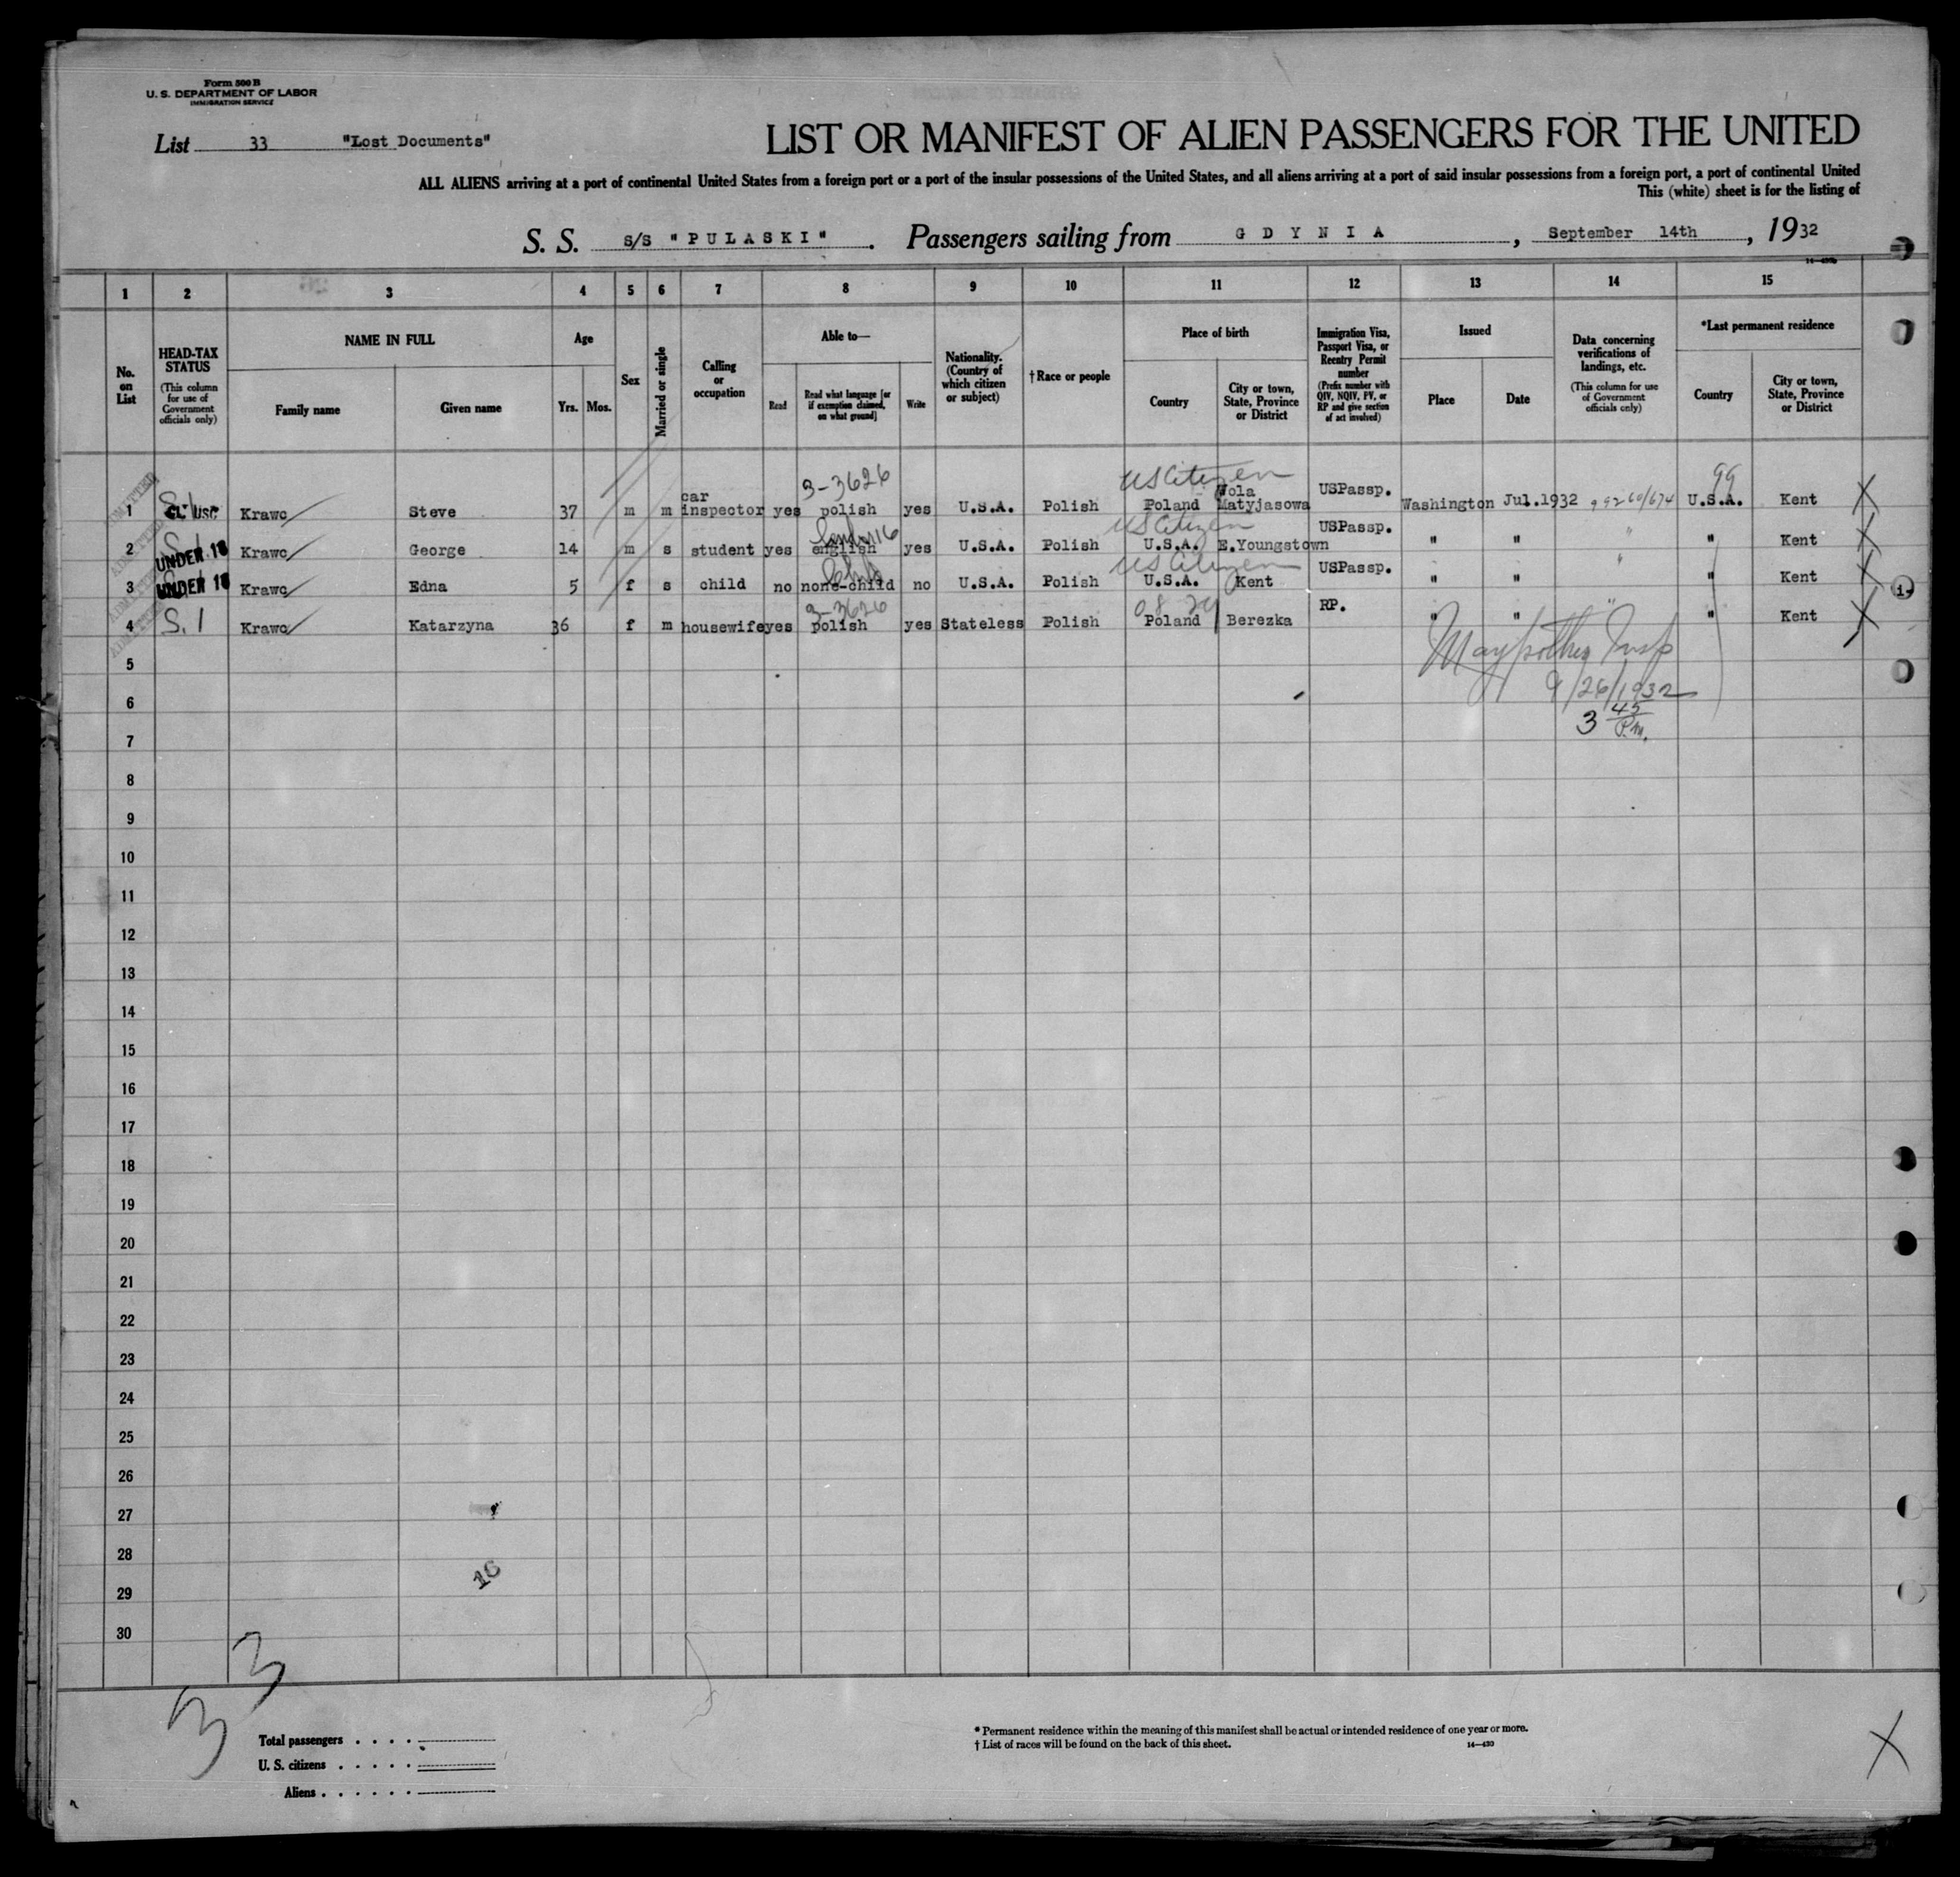 Form 500 B
U. S. DEPARTMENT OF LABOR
IMMIGRATION SERVICE
List 33 "Lost Documents"
LIST OR MANIFEST OF ALIEN PASSENGERS FOR THE UNITED
ALL ALIENS arriving at a port of continental United States from a foreign port or a port of the insular possessions of the United States, and all aliens arriving at a port of said insular possessions from a foreign port, a port of continental United
This (white) sheet is for the listing of
S. S. S/S "PULASKI". Passengers sailing from GDYNIA, September 14th, 1932
1 2 3 4 5 6 7 8 9 10 11 12 13 14 15
No. on List
HEAD-TAX STATUS
(This column for use of Government officials only)
NAME IN FULL
Family name
Given name
Age
Yrs. Mos.
Sex
Married or single
Calling or occupation
Able to—
Read
Read what language [or if exemption claimed, on what ground]
Write
Nationality. (Country of which citizen or subject)
† Race or people
Place of birth
Country
City or town, State, Province or District
Immigration Visa, Passport Visa, or Reentry Permit number
(Prefix number with QIV, NQIV, PV, or RP and give section of act involved)
Issued
Place
Date
Data concerning verifications of landings, etc.
(This column for use of Government officials only)
*Last permanent residence
Country
City or town, State, Province or District
3-3626 US Citizen 99
1 USC Krawc Steve 37 m m car inspector yes polish yes U.S.A. Polish Poland Wola Matyjasowa USPassp. Washington Jul.1932 U.S.A. Kent X
US Citizen
2 UNDER 16 Krawc George 14 m s student yes english yes U.S.A. Polish U.S.A. E.Youngstown USPassp. " " " " Kent X
US Citizen
3 UNDER 16 Krawc Edna 5 f s child no none-child no U.S.A. Polish U.S.A. Kent USPassp. " " " " Kent X
3-3626
4 S.1 Krawc Katarzyna 36 f m housewife yes polish yes Stateless Polish Poland Berezka RP. " " " " Kent X
ADMITTED
5
6 9/26/1932
7 3 45 P.M.
8
9
10
11
12
13
14
15
16
17
18
19
20
21
22
23
24
25
26
27
28
29
30
16
3
3
Total passengers . . . .
U. S. citizens . . . . .
Aliens . . . . . .
* Permanent residence within the meaning of this manifest shall be actual or intended residence of one year or more.
† List of races will be found on the back of this sheet. 14—430
X